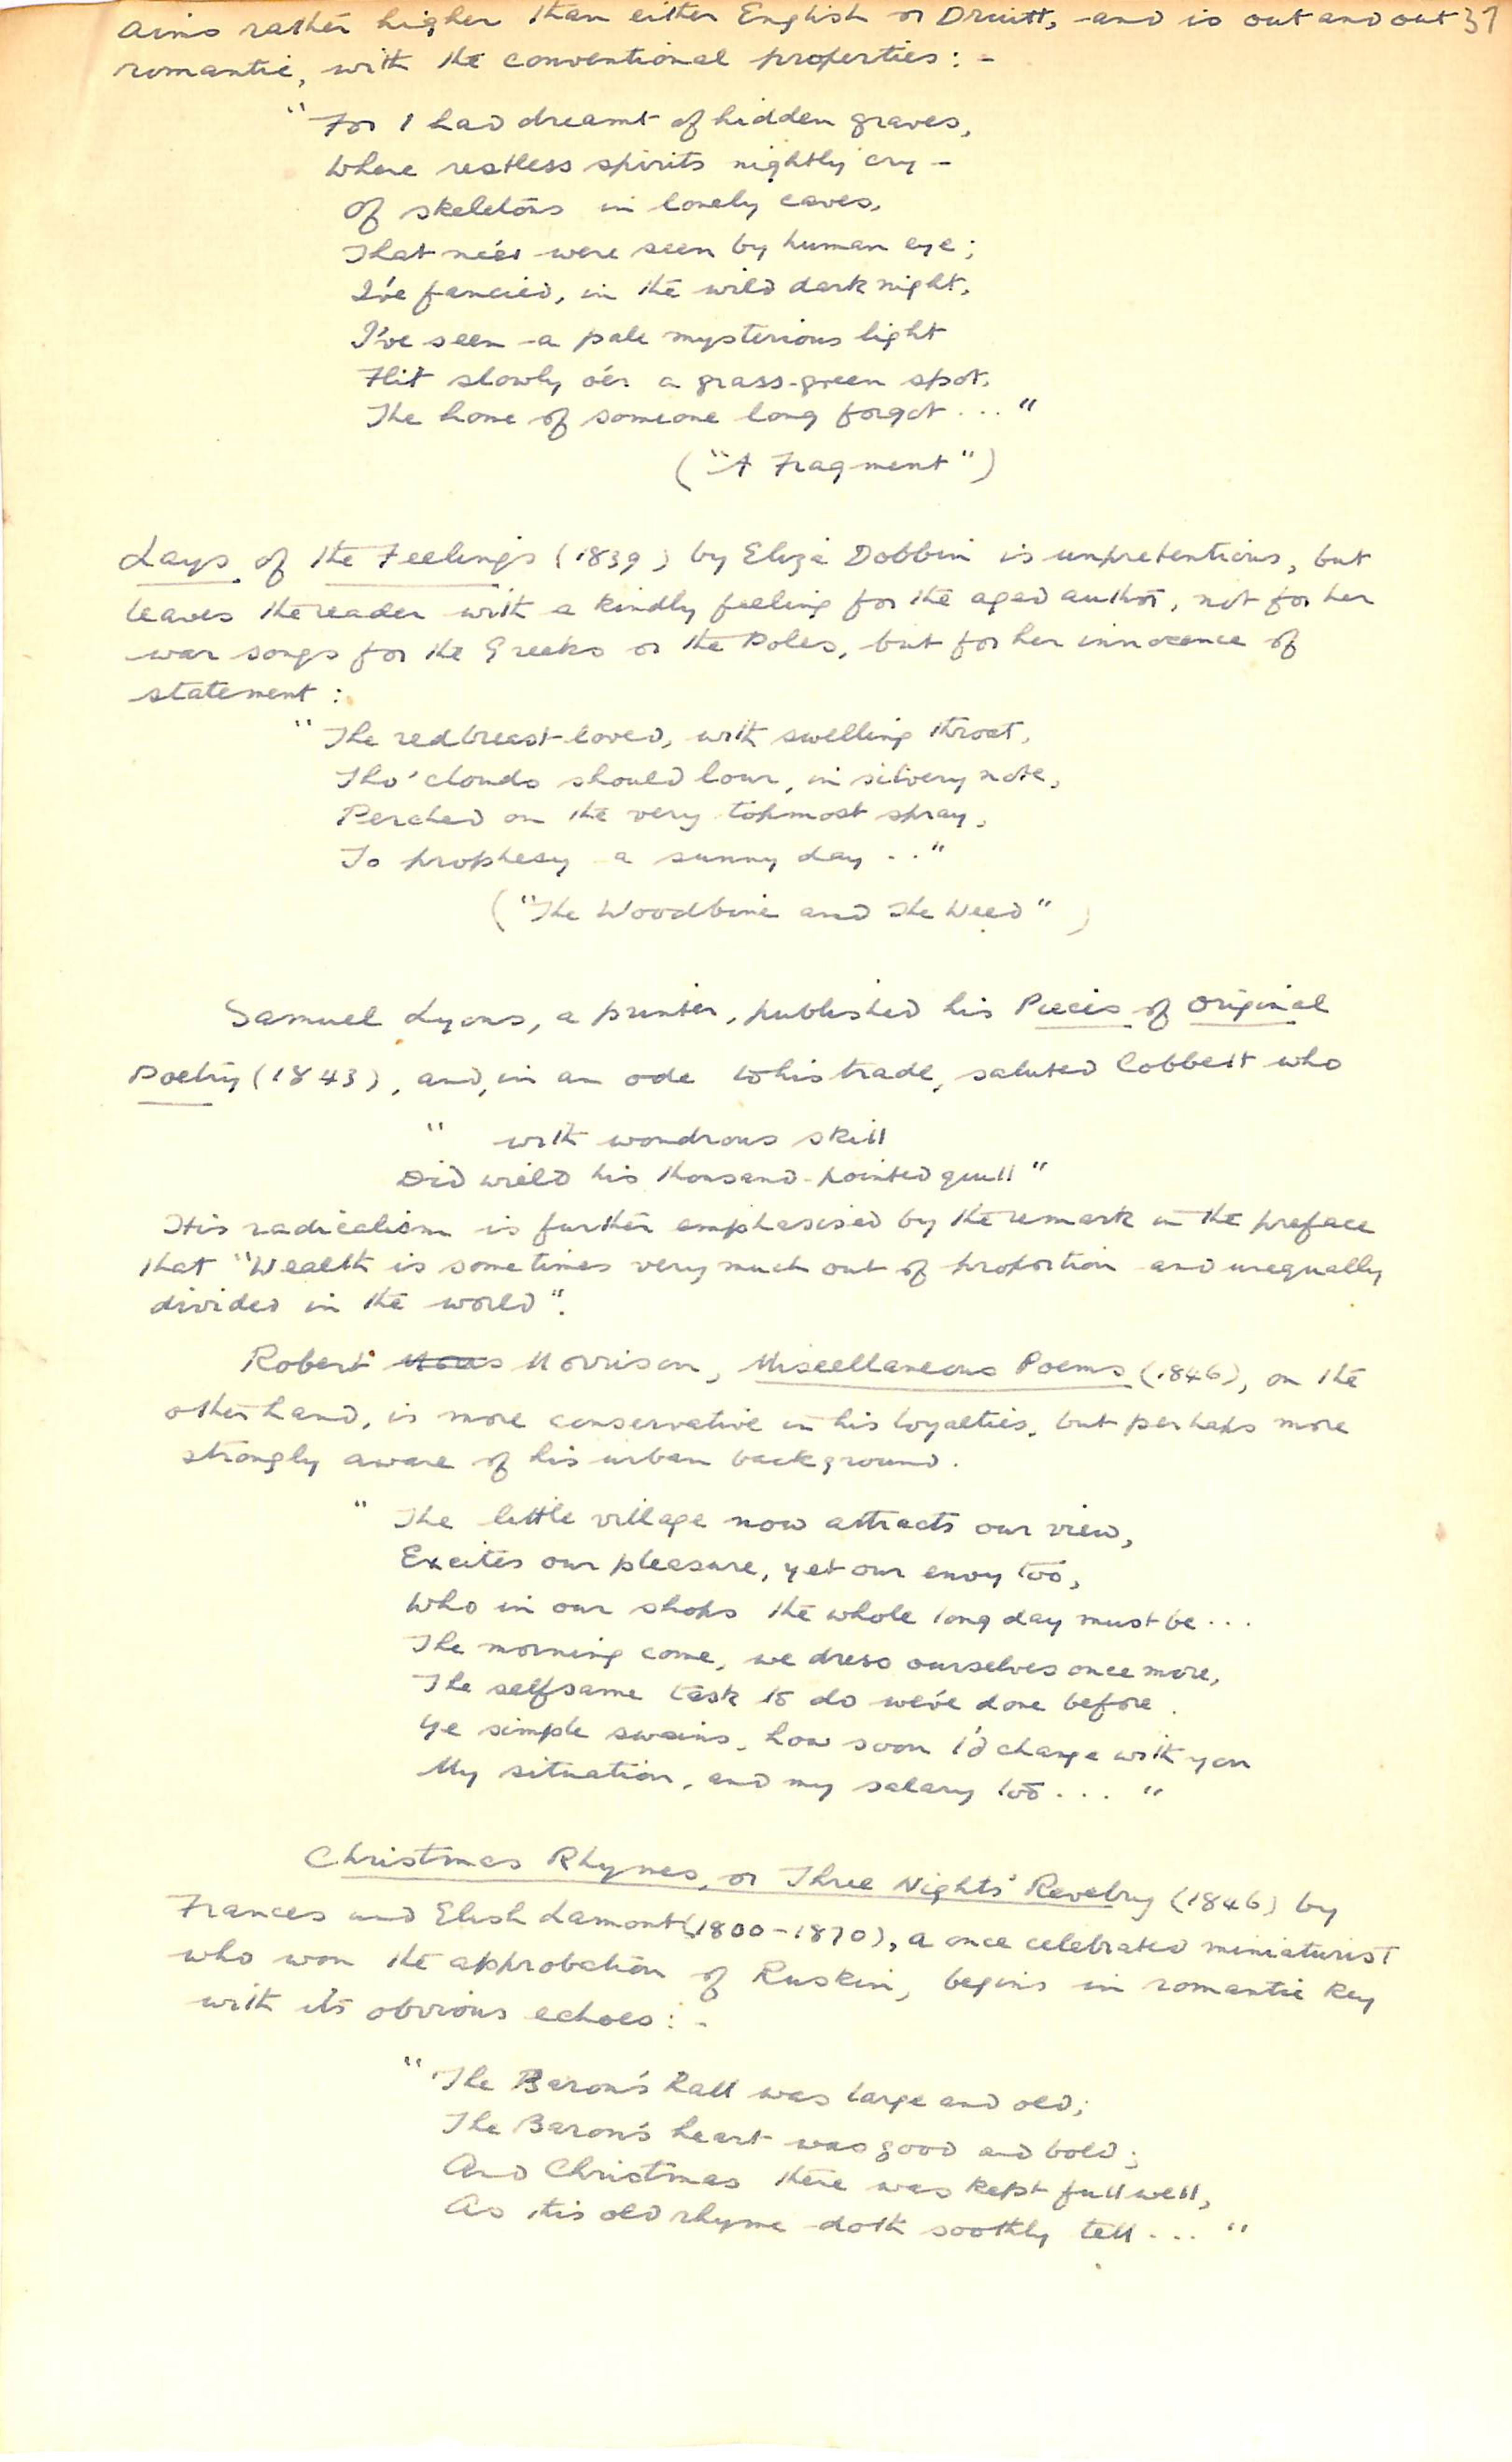 aims rather higher than either English or Druitt, and is out and out 37
romantic, with the conventional properties: -
"For I had dreamt of hidden graves,
Where restless spirits nightly cry -
Of skeletons in lonely caves,
That ne'er were seen by human eye;
I've fancied, in the wild dark night,
I've seen a pale mysterious light
Flit slowly o'er a grass-green spot,
The home of someone long forgot ... "
("A Fragment")
Lays of the Feelings (1839) by Eliza Dobbin is unpretentious, but
leaves the reader with a kindly feeling for the aged author, not for her
war songs for the Greeks or the Poles, but for her innocence of
statement :
"The redbreast loved, with swelling throat,
Tho' clouds should lour, in silvery note,
Perched on the very topmost spray,
To prophesy a sunny day .. "
("The Woodbine and The Weed")
Samuel Lyons, a printer, published his Pieces of Original
Poetry (1843), and, in an ode to his trade, saluted Cobbett who
" with wondrous skill
Did wield his thousand-pointed quill"
His radicalism is further emphasised by the remark in the preface
that "Wealth is sometimes very much out of proportion and unequally
divided in the world".
Robert Morrison, Miscellaneous Poems (1846), on the
other hand, is more conservative in his loyalties, but perhaps more
strongly aware of his urban background.
" The little village now attracts our view,
Excites our pleasure, yet our envy too,
Who in our shops the whole long day must be ...
The morning come, we dress ourselves once more,
The selfsame task to do we've done before.
Ye simple swains, how soon I'd change with you
My situation, and my salary too ... "
Christmas Rhymes, or Three Nights' Revelry (1846) by
Frances and Elish Lamont (1800-1870), a once celebrated miniaturist
who won the approbation of Ruskin, begins in romantic key
with its obvious echoes: -
"The Baron's hall was large and old;
The Baron's heart was good and bold;
And Christmas there was kept full well,
As this old rhyme doth soothly tell ... "